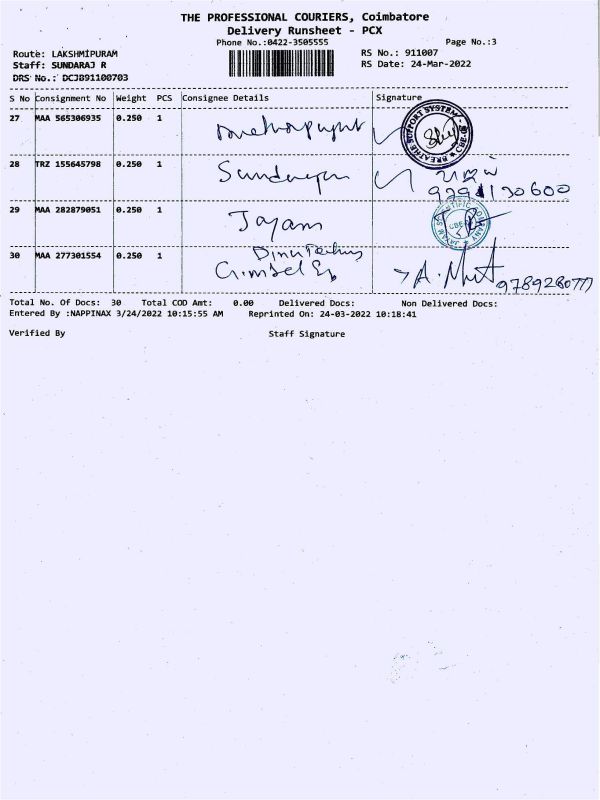 THE PROFESSIONAL COURIERS, Coimbatore
Delivery Runsheet - PCX
Phone No.:0422-3505555 Page No.:3
Route: LAKSHMIPURAM RS No.: 911007
Staff: SUNDARAJ R RS Date: 24-Mar-2022
DRS No.: DCJB91100703
S No Consignment No Weight PCS Consignee Details Signature
27 MAA 565306935 0.250 1
BREATHE SUPPORT SYSTEM
28 TRZ 155645798 0.250 1
29 MAA 282879051 0.250 1 Jayam
30 MAA 277301554 0.250 1
9789280777
Total No. Of Docs: 30 Total COD Amt: 0.00 Delivered Docs: Non Delivered Docs:
Entered By :NAPPINAX 3/24/2022 10:15:55 AM Reprinted On: 24-03-2022 10:18:41
Verified By Staff Signature